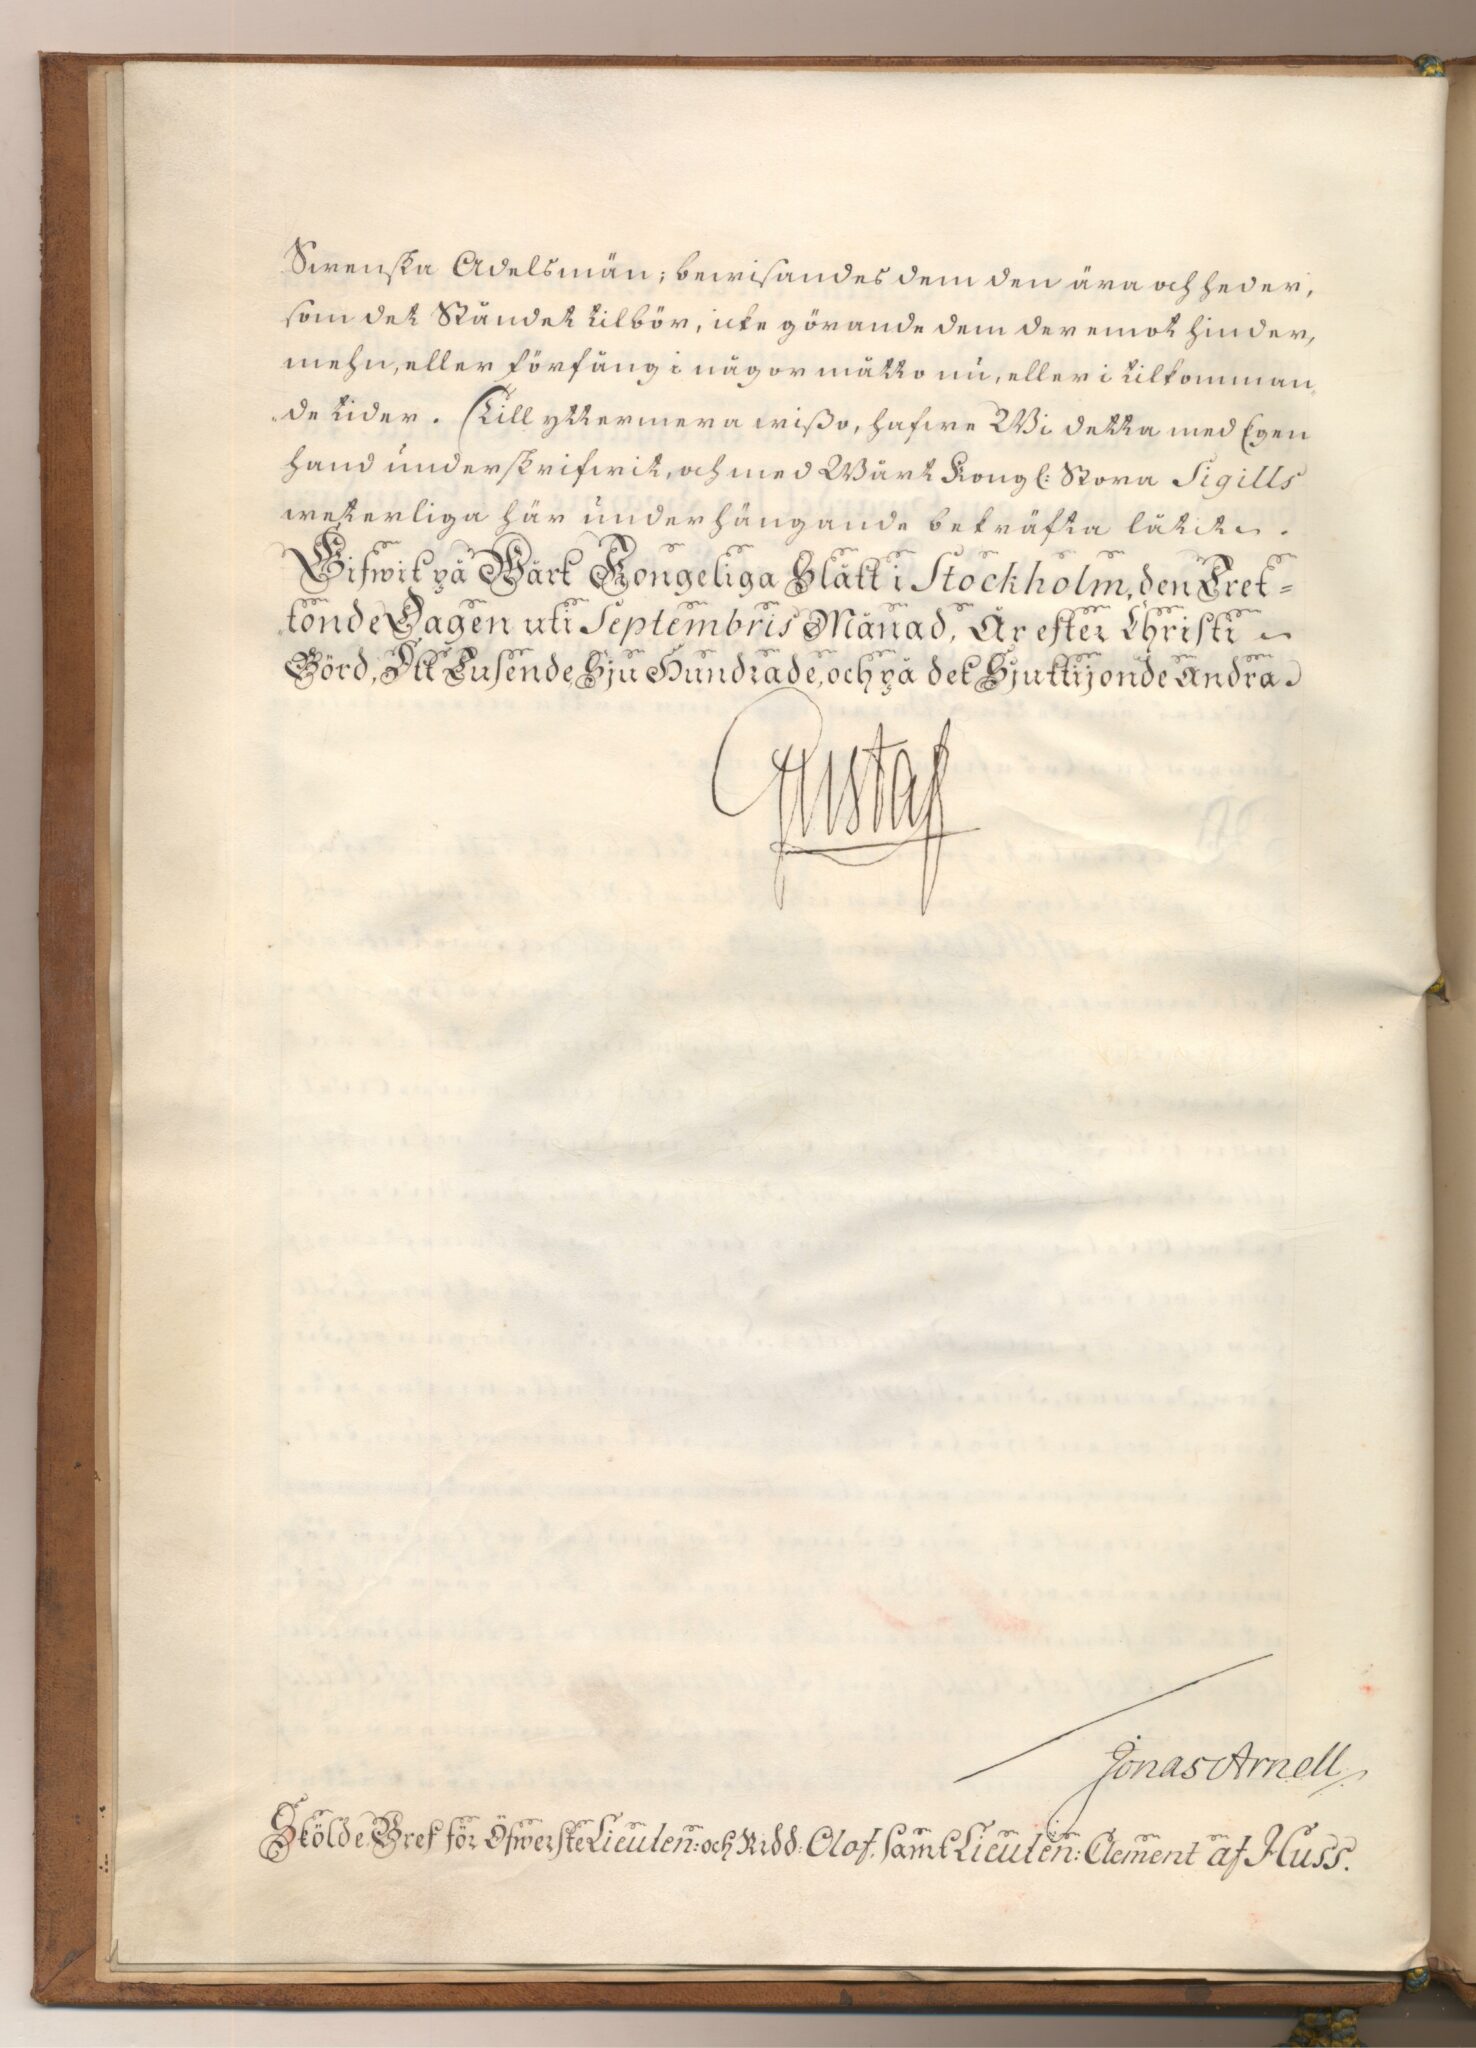 Swenska Adelsmän; bewisandes dem den ära och heder,
som det Ståndet tilbör, icke görande dem deremot hinder,
mehn, eller förfång i någor måtto nu, eller i tilkomman
de tider. Till yttermera wißo, hafwe Wi detta med Egen
hand underskrifwit, och med Wårt Kongl: Stora Sigills
weterliga här underhängande bekräfta låtit.
Gifwit på Wårt Kongeliga Slått i Stockholm, den Tret-
tonde Dagen uti Septembris Månad, År efter Christi
Börd, Ett Tusende Sju Hundrade, och på det Sjuttijonde Andra.
Gustaf
Jonas Arnell
Skölde Bref för Öfwerste Lieuten: och Ridd: Olof, samt Lieuten: Clement af Huss.